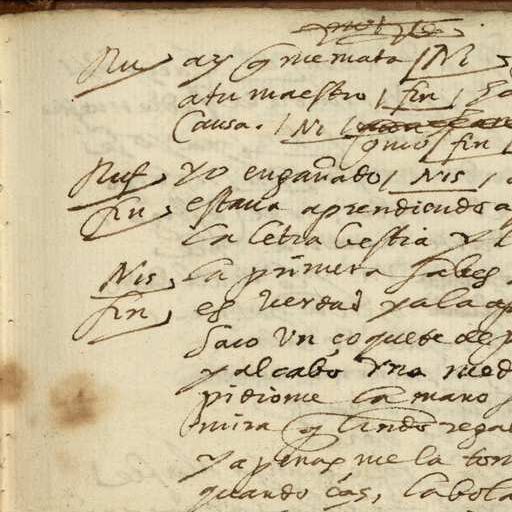 Ru ay q me mata / Ni
a tu maestro / fin /
Causa. / Ni /
fin /
Ruf yo engañado / Nis /
fin estaua aprendiendo a
la letra bestia y
Nis la primera sabes
fin es verdad y a la
saco Un coquete de
y al cabo Una med
pidiome la mano
mira q lindo rega
y apenas me la tom
quando cas, la bola